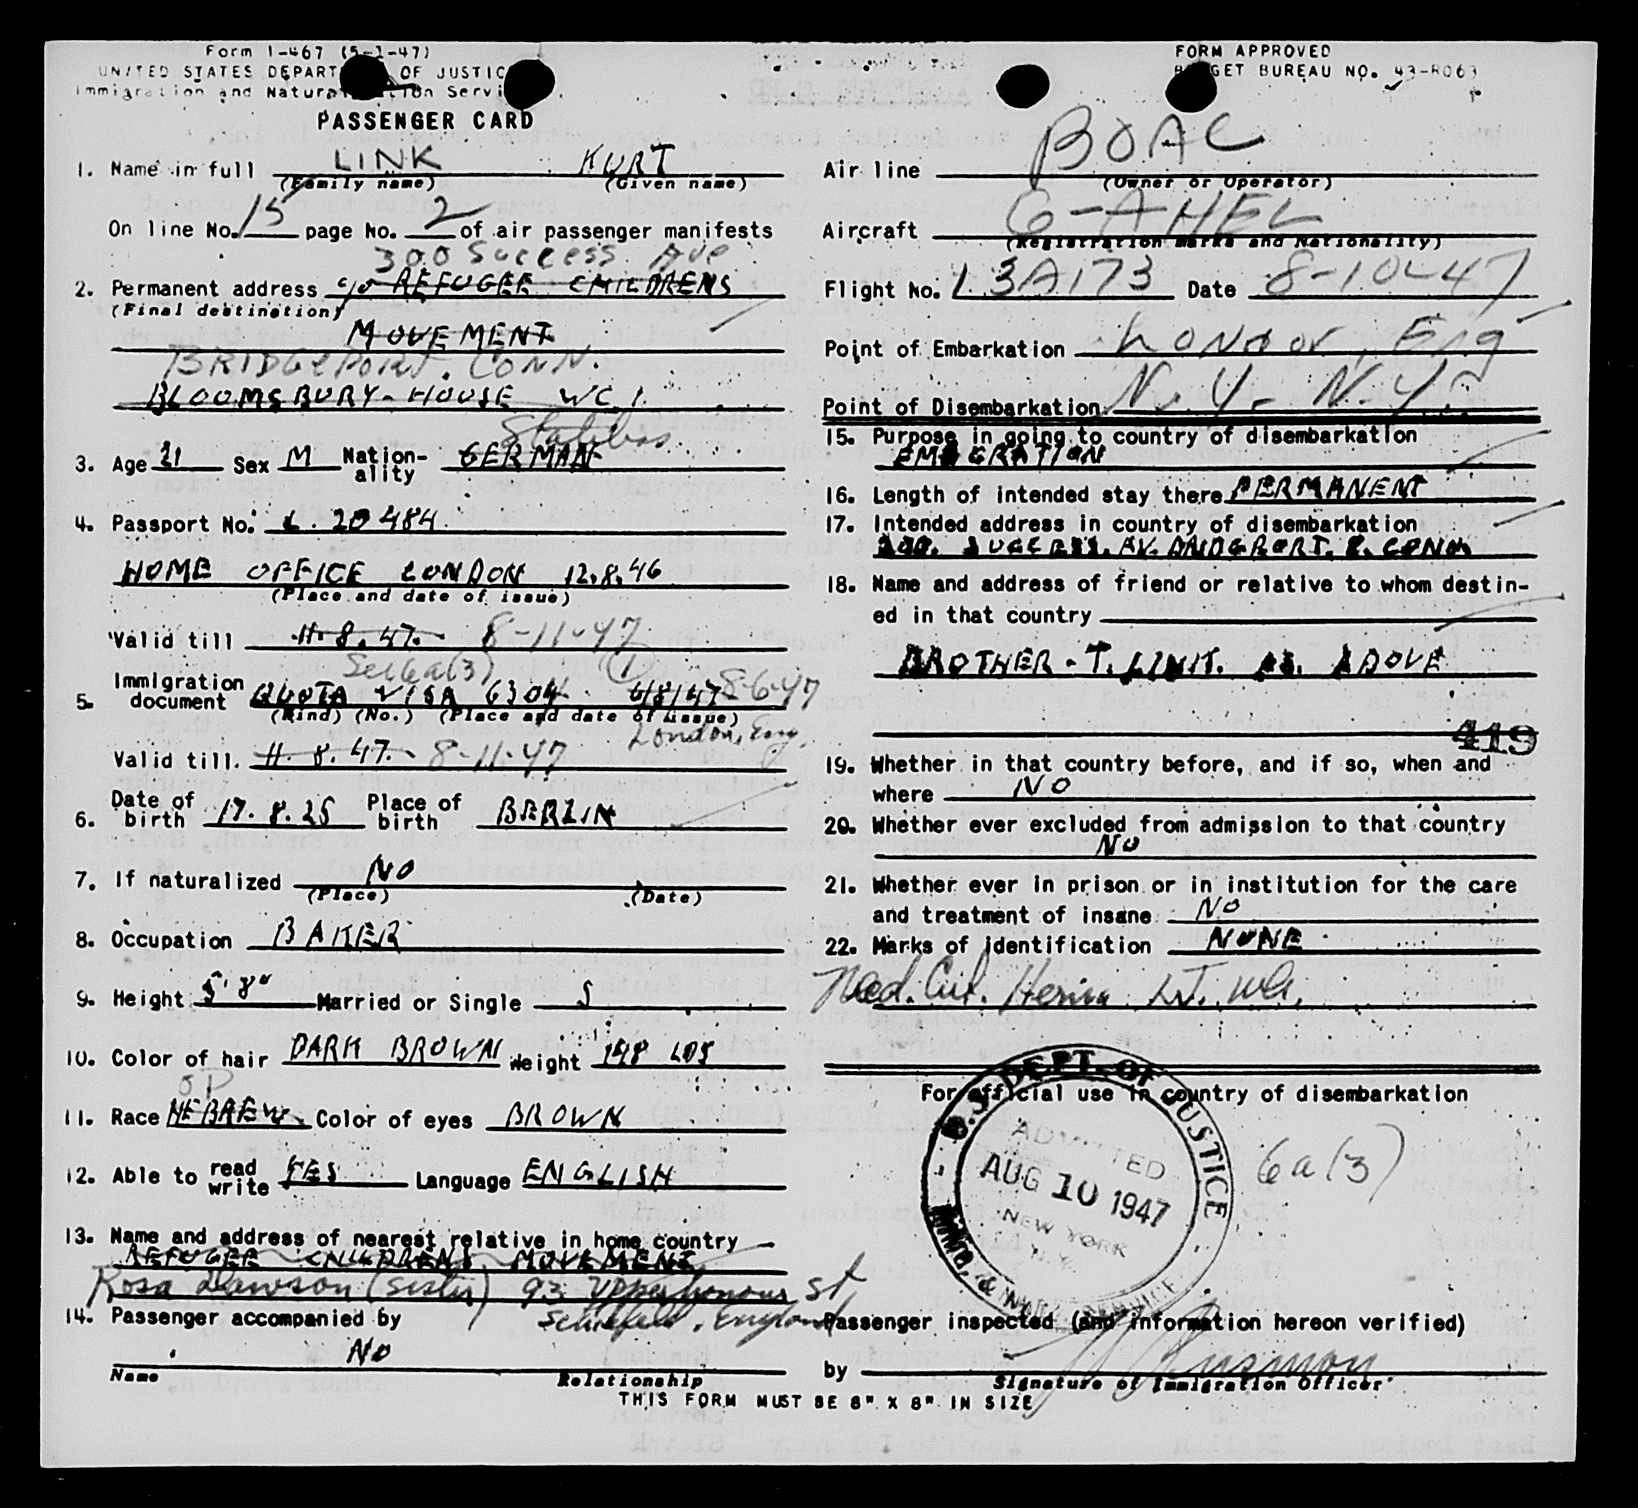 Form I-467 (5-1-47)
UNITED STATES DEPART OF JUSTIC
Immigration and Natural tion Servi
PASSENGER CARD
1. Name in full LINK KURT
(Family name) (Given name)
On line No. 15 page No. 2 of air passenger manifests
300 Success Ave
2. Permanent address c/o REFUGEE CHILDRENS
(Final destination)
MOVEMENT
BRIDGEPORT, CONN.
BLOOMSBURY-HOUSE WC1
Stateless
3. Age 21 Sex M Nation-ality GERMAN
4. Passport No. L. 20484
HOME OFFICE LONDON 12.8.46
(Place and date of issue)
Valid till 11.8.47. 8-11-47
Sec 6a(3) (1)
5. Immigration document QUOTA VISA 6304 6/8/47 8-6-47
(Kind) (No.) (Place and date of issue)
London, Eng.
Valid till. 11.8.47. 8-11-47
6. Date of birth 17.8.25 Place of birth BERLIN
7. If naturalized NO
(Place) (Date)
8. Occupation BAKER
9. Height 5'8" Married or Single S
10. Color of hair DARK BROWN Weight 148 LBS
OP
11. Race HEBREW Color of eyes BROWN
12. Able to read write YES Language ENGLISH
13. Name and address of nearest relative in home country
REFUGEE CHILDRENS MOVEMENT
Rosa Dawson (sister) 93 St
England
14. Passenger accompanied by
NO
Name Relationship
FORM APPROVED
BUDGET BUREAU NO. 43-R063
Air line BOAC
(Owner or Operator)
Aircraft G-AHEL
(Registration marks and Nationality)
Flight No. L3A173 Date 8-10-47
Point of Embarkation London, Eng
Point of Disembarkation N.Y. N.Y.
15. Purpose in going to country of disembarkation
EMIGRATION
16. Length of intended stay there PERMANENT
17. Intended address in country of disembarkation
300. SUCCESS. AV. BRIDGEPORT. CONN
18. Name and address of friend or relative to whom destin-
ed in that country
BROTHER - T. LINK. AS. ABOVE
419
19. Whether in that country before, and if so, when and
where NO
20. Whether ever excluded from admission to that country
NO
21. Whether ever in prison or in institution for the care
and treatment of insane NO
22. Marks of identification NONE
Med. Cert. Hernia
For official use in country of disembarkation
U.S. DEPT. OF JUSTICE
ADMITTED
AUG 10 1947
NEW YORK
N.Y.
IMMIG. & NATZ. SERVICE
6a(3)
Passenger inspected (and information hereon verified)
by
Signature of Immigration Officer
THIS FORM MUST BE 8" X 8" IN SIZE